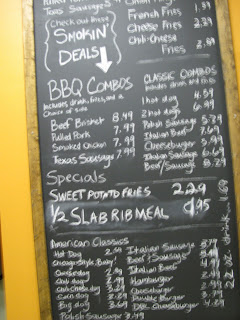 Texas Sausage
French Fries
Cheese Fries 2.39
Chili-Cheese Fries 2.89
Check out these
SMOKIN'
DEALS
BBQ COMBOS
Includes drink, fries, and a
Choice of side
Beef Brisket 8.49
Pulled Pork 7.99
Smoked Chicken 7.99
Texas Sausage 7.99
CLASSIC COMBOS
includes drink and fries
1 hot dog 4.99
2 hot dogs 6.99
Polish Sausage 5.79
Italian Beef 7.69
Cheeseburger 5.99
Italian Sausage
Beef/Sausage 8.29
Specials
SWEET POTATO FRIES 2.29
1/2 SLAB RIB MEAL
American Classics
Hot Dog
Chicago Style
Cheese dog
Chili dog
Chili Cheese dog
Corn dog
Big dog
Polish Sausage
Italian Sausage
Beef & Sausage
Italian Beef
Hamburger
Cheeseburger
Double Burger
Dbl. Cheeseburger